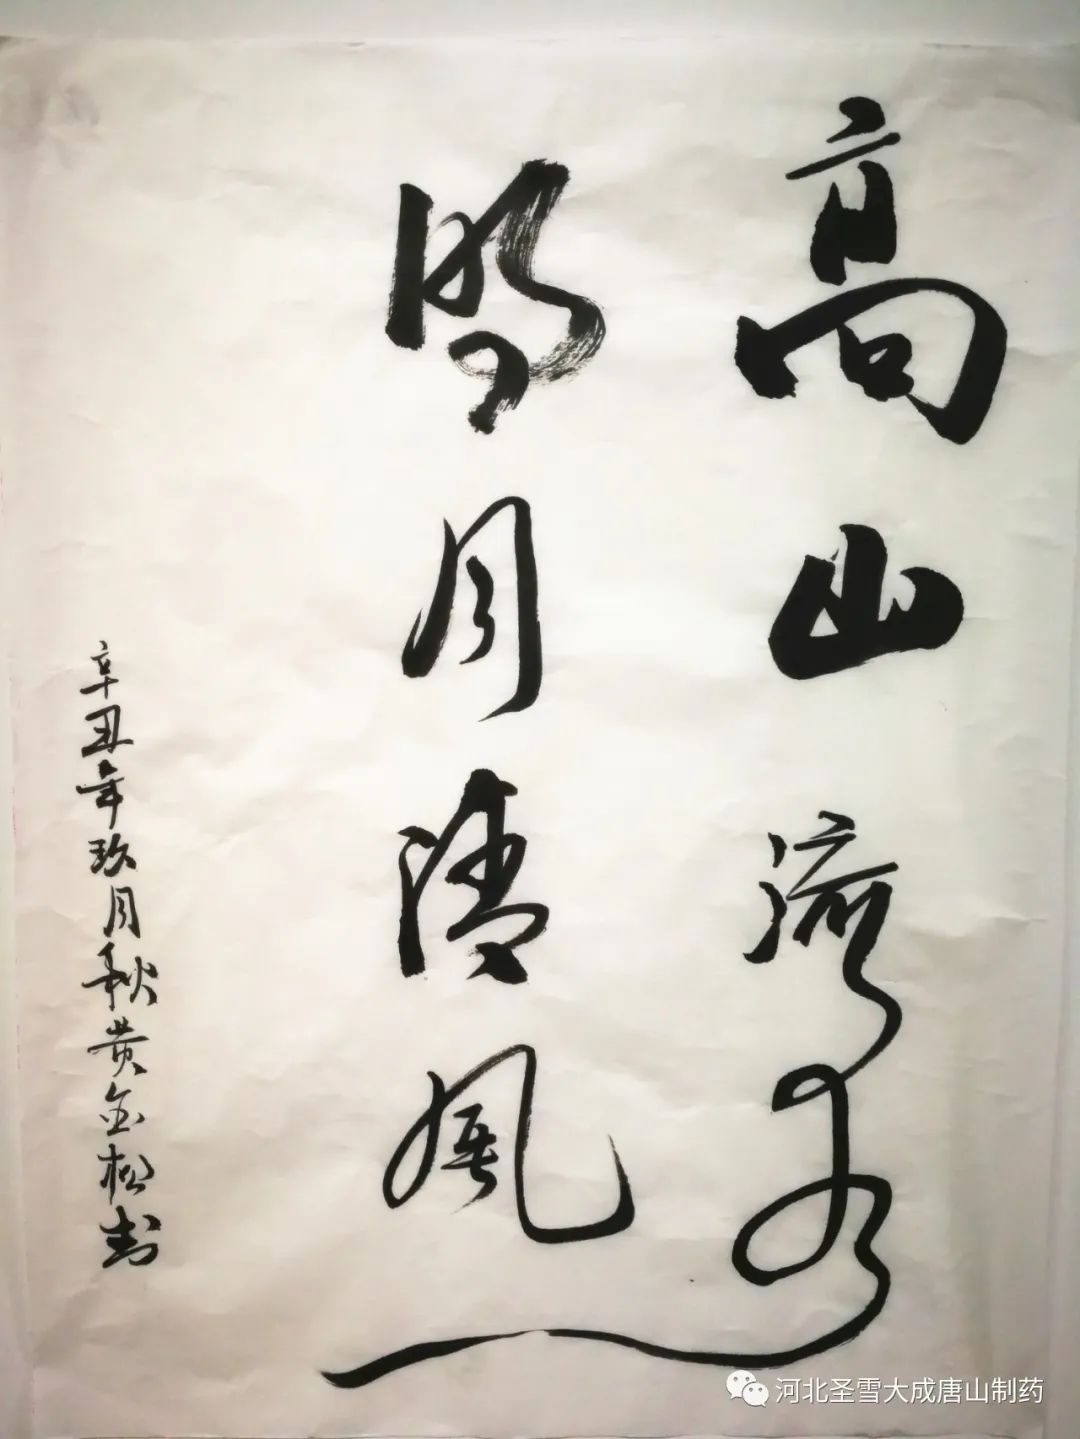 高山流水
明月清风
辛丑年玖月秋黄金松书
河北圣雪大成唐山制药